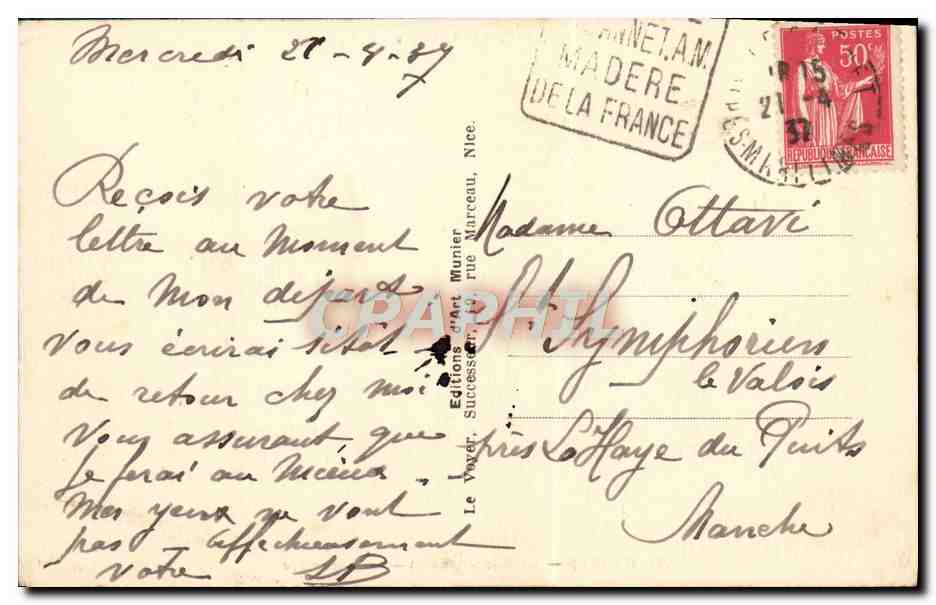 Mercredi 21-4-37
Reçois votre
lettre au moment
de mon départ.
Vous écrirai sitôt
de retour chez moi
Vous assurant que
je ferai au mieux -
mes yeux ne vont
pas - affectueusement
votre SB
Editions d'Art Munier
Le Voyer, Successeur, 10, rue Marceau, Nice.
CANNET.A.M.
MADERE
DE LA FRANCE
POSTES
50c
15
21 -4
37
REPUBLIQUE FRANCAISE
Madame Ottavi
St Symphorien
le Valois
près La Haye du Puits
Manche
CPAPHIL